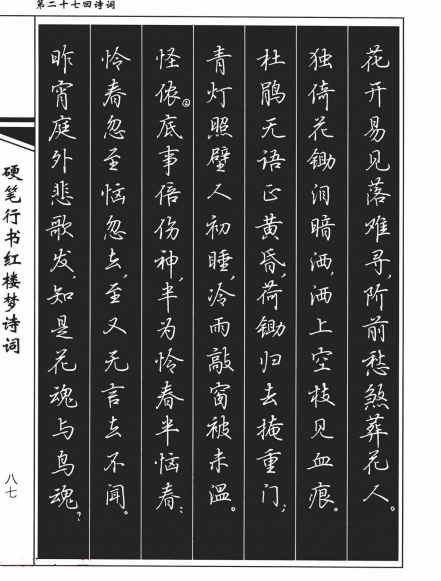 第二十七回诗词
花开易见落难寻,阶前愁煞葬花人。
独倚花锄泪暗洒,洒上空枝见血痕。
杜鹃无语正黄昏,荷锄归去掩重门;
青灯照壁人初睡,冷雨敲窗被未温。
怪侬②底事倍伤神,半为怜春半恼春:
怜春忽至恼忽去,至又无言去不闻。
昨宵庭外悲歌发,知是花魂与鸟魂?
硬笔行书红楼梦诗词
八七